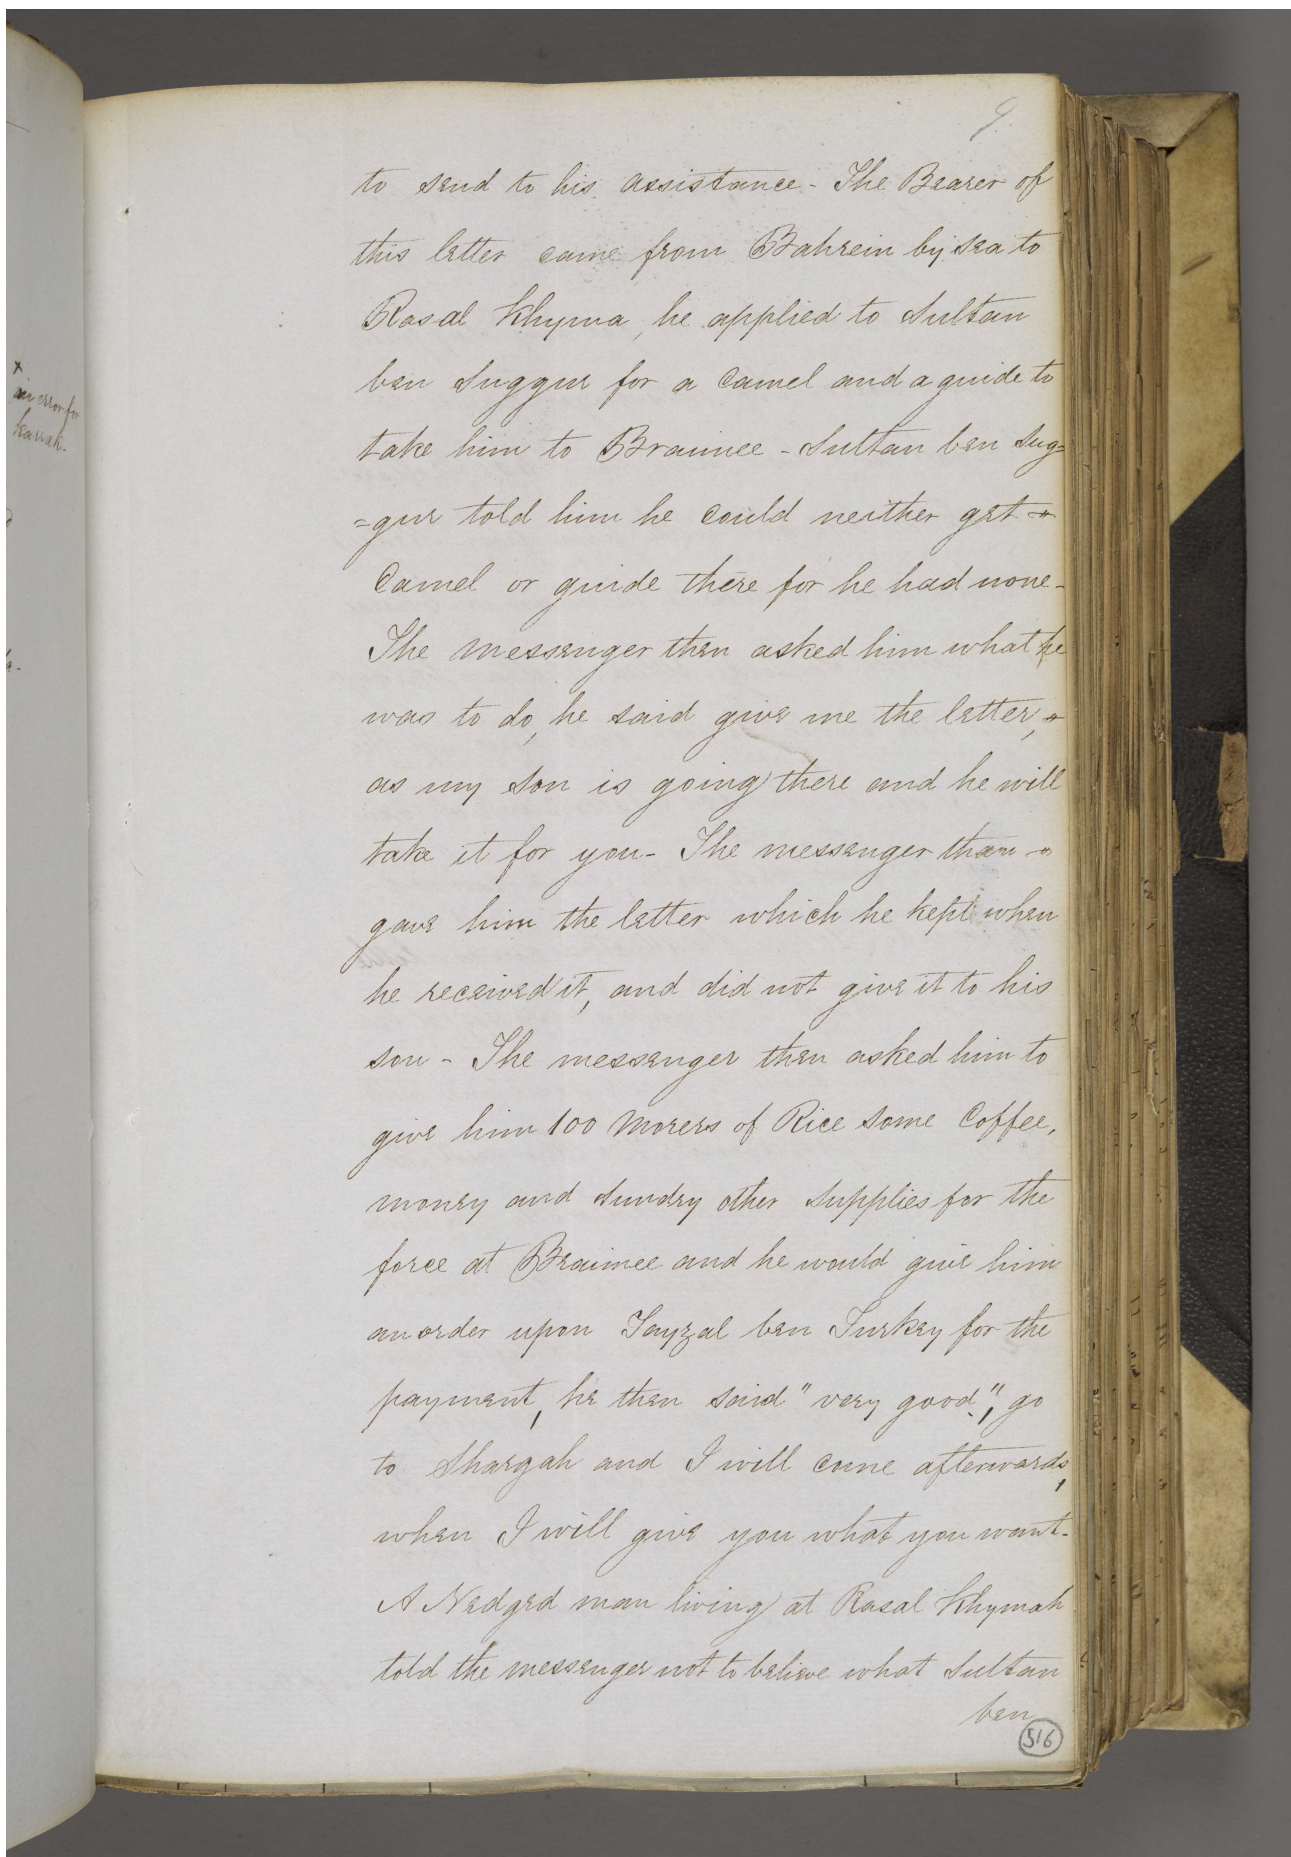 9.
to send to his assistance - The Bearer of
this letter came from Bahrein by sea to
Rasal Khyma, he applied to Sultan
ben Suggur for a Camel and a guide to
take him to Braimee - Sultan ben Sug=
=gur told him he could neither get
Camel or guide there for he had none -
The messenger then asked him what he
was to do, he said give me the letter,
as my son is going there and he will
take it for you - The messenger then
gave him the letter which he kept when
he received it, and did not give it to his
son - The messenger then asked him to
give him 100 Morers of Rice some Coffee,
money and sundry other supplies for the
force at Braimee and he would give him
an order upon Fayzal ben Turkey for the
payment, he then said "very good", go
to Shargah and I will come afterwards,
when I will give you what you want -
A Nedged man living at Rasal Khymah
told the messenger not to believe what Sultan
ben
516
x
an error for
Karrak -